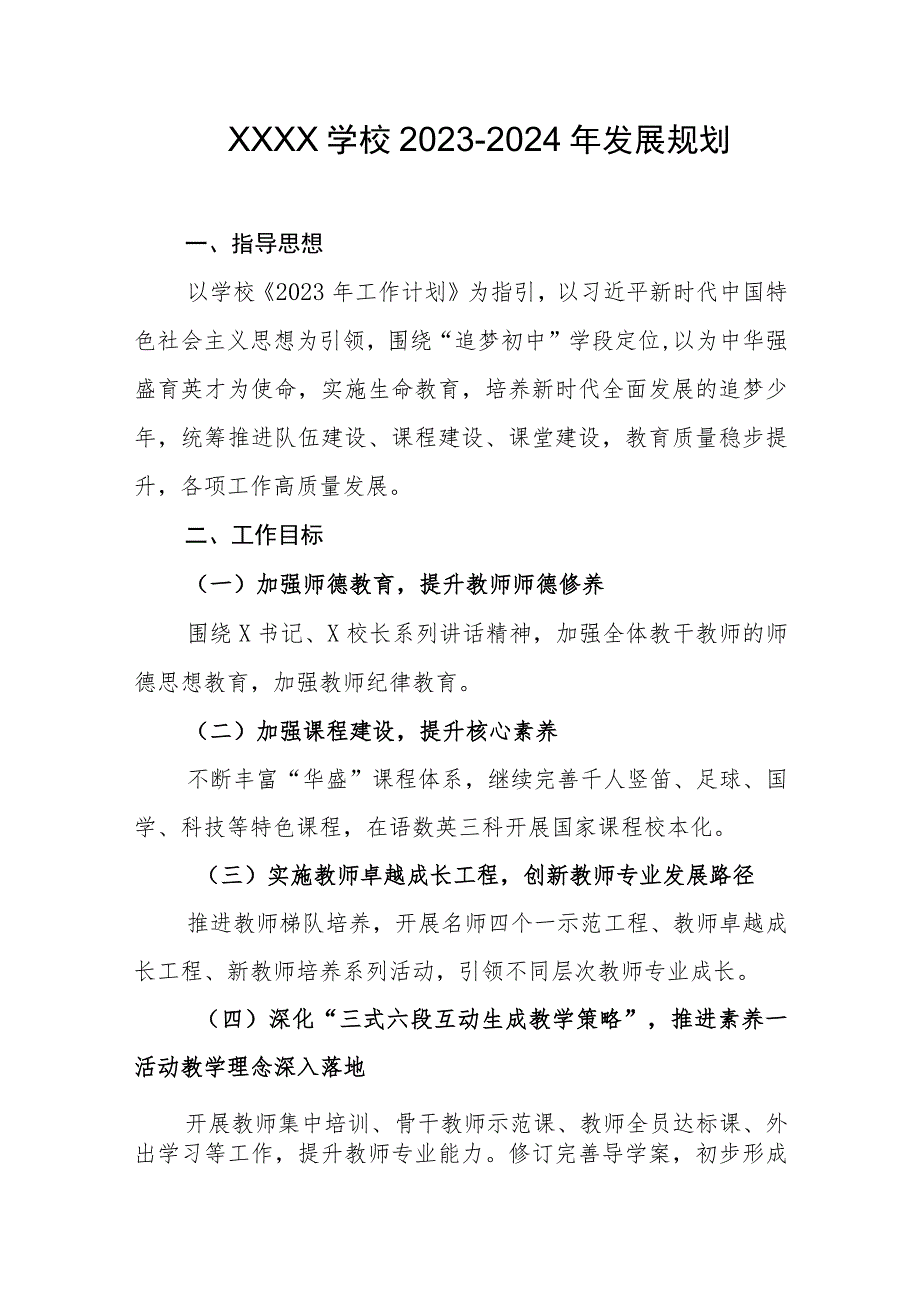 XXXX 学校 2023-2024 年发展规划
一、指导思想
以学校《2023 年工作计划》为指引，以习近平新时代中国特
色社会主义思想为引领，围绕“追梦初中”学段定位,以为中华强
盛育英才为使命，实施生命教育，培养新时代全面发展的追梦少
年，统筹推进队伍建设、课程建设、课堂建设，教育质量稳步提
升，各项工作高质量发展。
二、工作目标
（一）加强师德教育，提升教师师德修养
围绕 X 书记、X 校长系列讲话精神，加强全体教干教师的师
德思想教育，加强教师纪律教育。
（二）加强课程建设，提升核心素养
不断丰富“华盛”课程体系，继续完善千人竖笛、足球、国
学、科技等特色课程，在语数英三科开展国家课程校本化。
（三）实施教师卓越成长工程，创新教师专业发展路径
推进教师梯队培养，开展名师四个一示范工程、教师卓越成
长工程、新教师培养系列活动，引领不同层次教师专业成长。
（四）深化“三式六段互动生成教学策略”，推进素养一
活动教学理念深入落地
开展教师集中培训、骨干教师示范课、教师全员达标课、外
出学习等工作，提升教师专业能力。修订完善导学案，初步形成